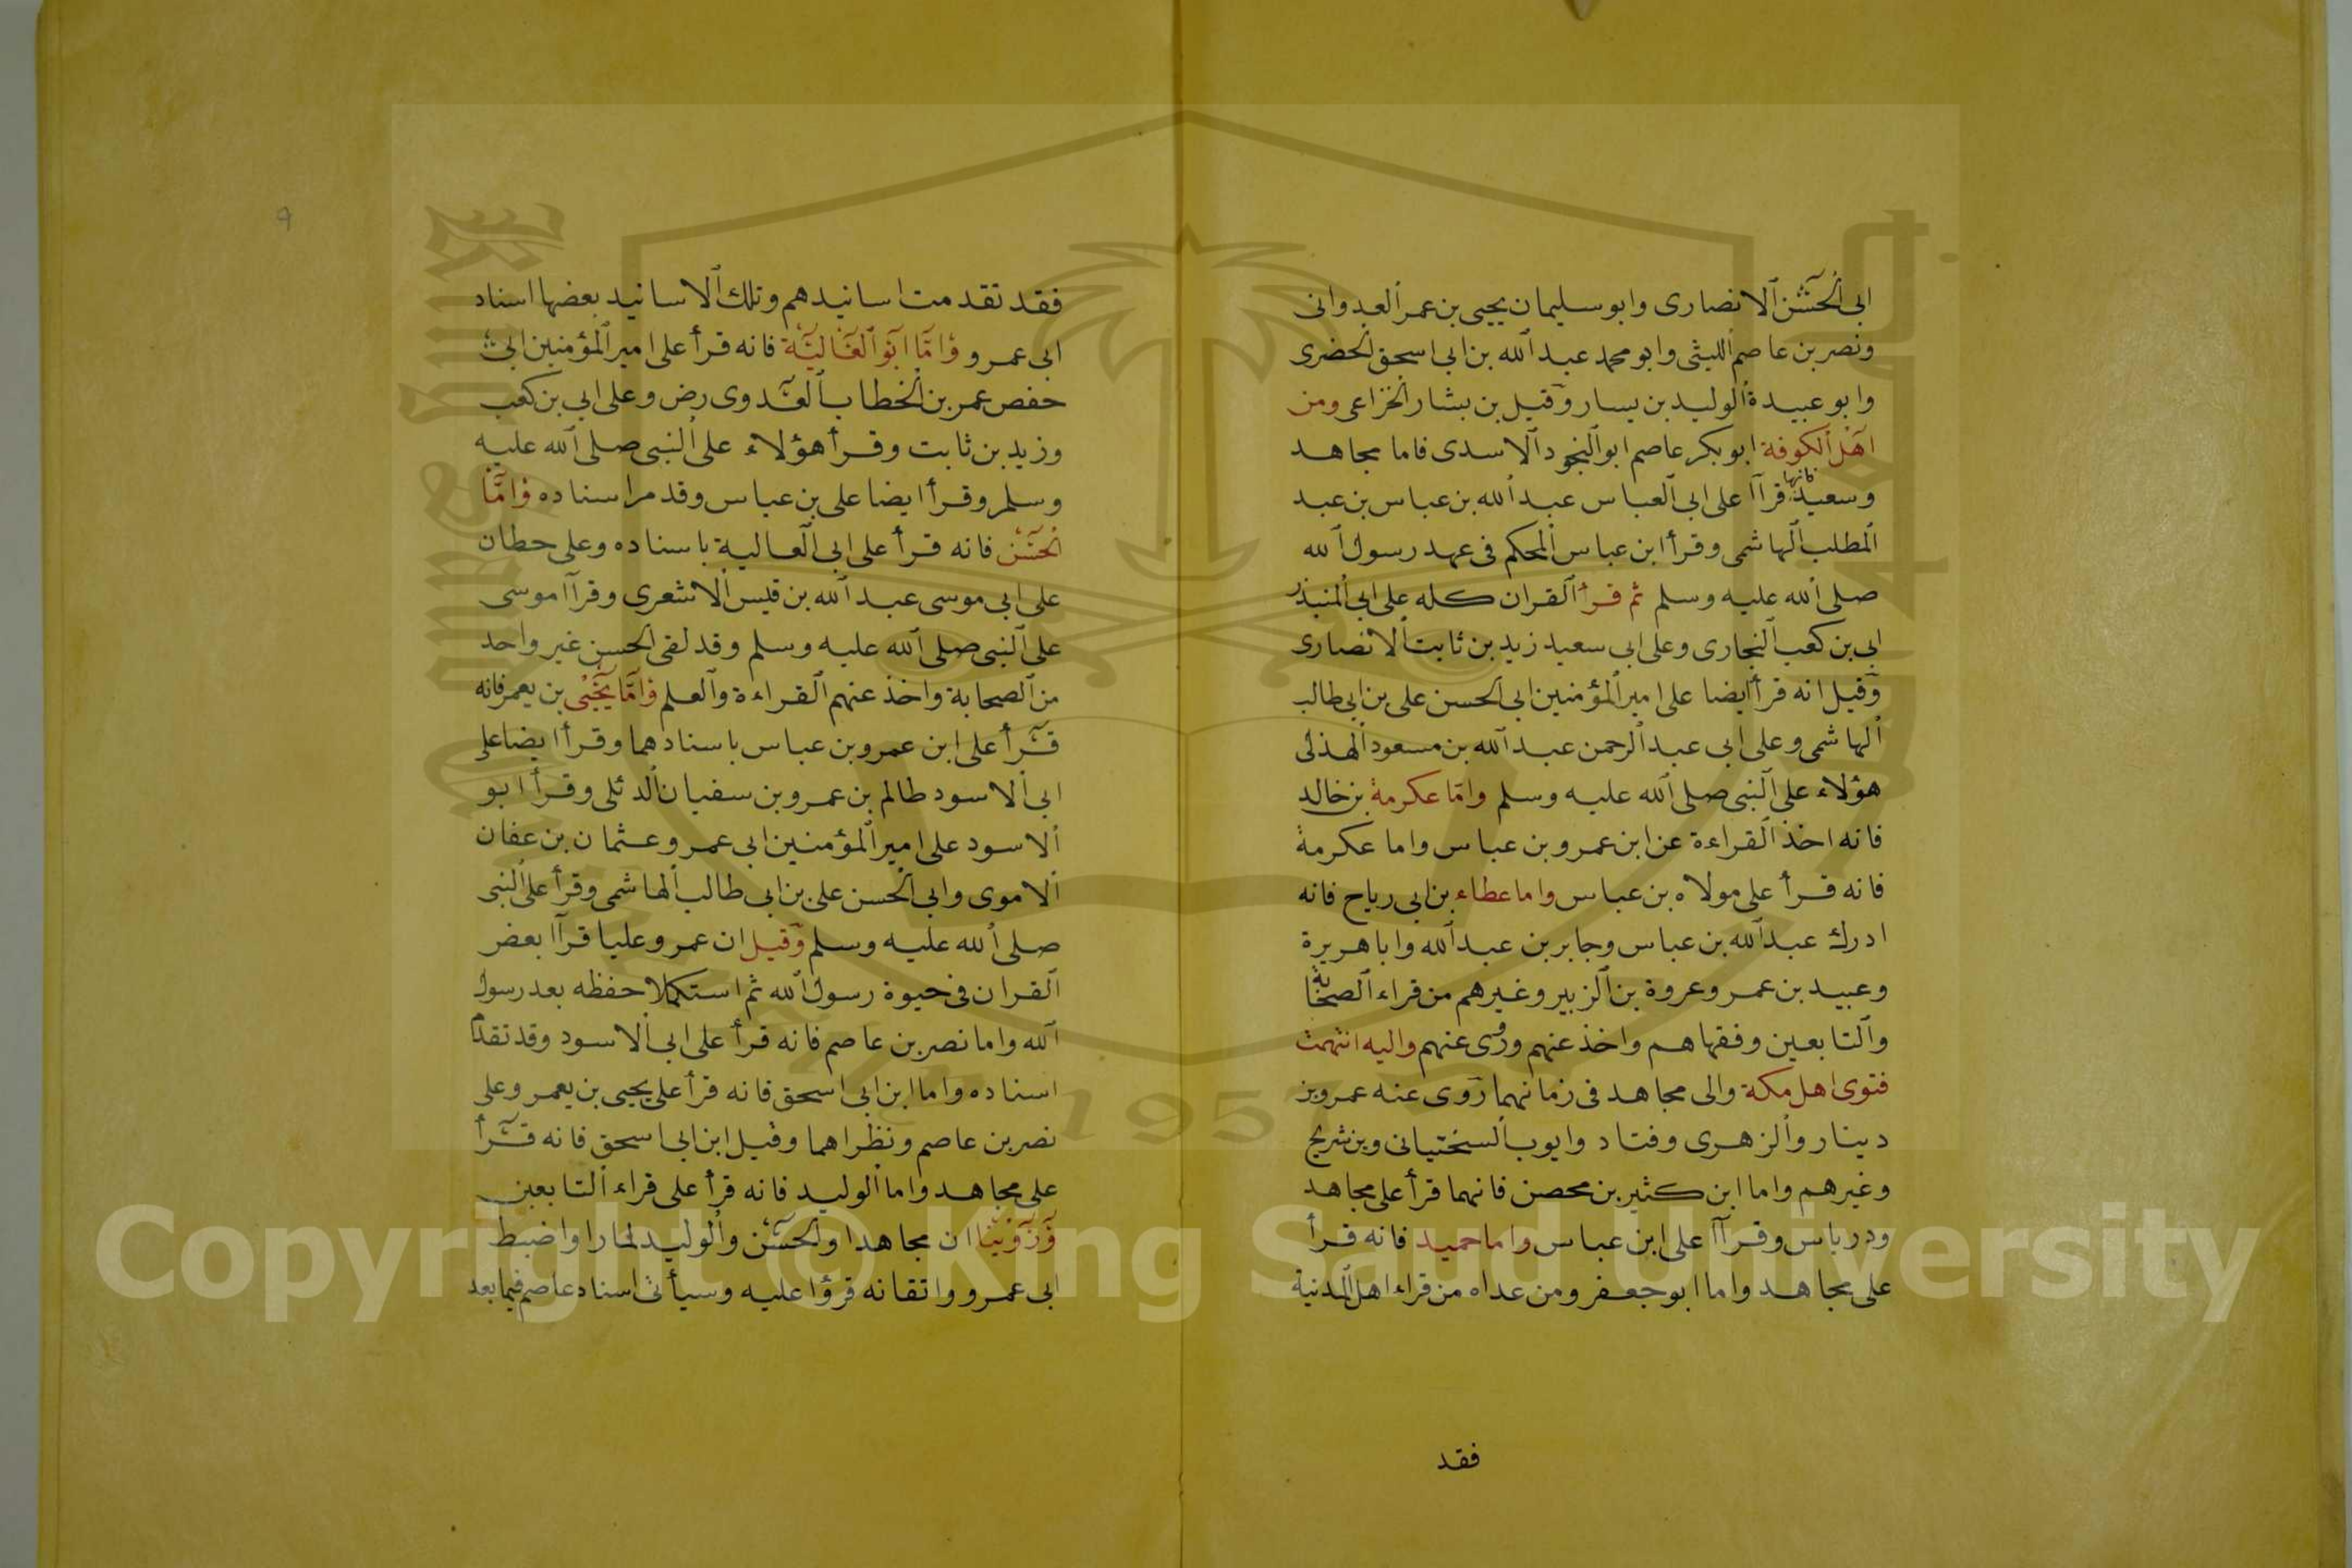 ابى الحسن الانصارى وابو سليمان يحيى بن عمر العدوانى
ونصر بن عاصم الليثى وابو محمد عبد الله بن ابى اسحق الحضرى
وابو عبيدة الوليد بن يسار وقيل بن بشار الخزاعى ومن
اهل الكوفة ابو بكر عاصم ابو النجود الاسدى فاما مجاهد
وسعيد فانهما قرآا على ابى العباس عبد الله بن عباس بن عبد
المطلب الهاشمى وقرأ ابن عباس المحكم فى عهد رسول الله
صلى الله عليه وسلم ثم قرأ القران كله على ابى المنذر
ابى بن كعب النجارى وعلى ابى سعيد زيد بن ثابت الانصارى
وقيل انه قرأ ايضا على امير المؤمنين ابى الحسن على بن ابى طالب
الهاشمى وعلى ابى عبد الرحمن عبد الله بن مسعود الهذلى
هؤلاء على النبى صلى الله عليه وسلم واما عكرمة بن خالد
فانه اخذ القراءة عن ابن عمر وبن عباس واما عكرمة
فانه قرأ على مولاه بن عباس واما عطاء بن ابى رياح فانه
ادرك عبد الله بن عباس وجابر بن عبد الله وابا هريرة
وعبيد بن عمر وعروة بن الزبير وغيرهم من قراء الصحابة
والتابعين وفقهاهم واخذ عنهم وروى عنهم واليه انتهت
فتوى اهل مكة والى مجاهد فى زمانهما روى عنه عمرو بن
دينار والزهرى وفتاد وايوب السختيانى وبن شريح
وغيرهم واما ابن كثير بن محصن فانهما قرأ على مجاهد
ودرباس وقرآا على ابن عباس واما حميد فانه قرأ
على مجاهد واما ابو جعفر ومن عداه من قراء اهل المدنية
فقد
فقد تقدمت اسانيدهم وتلك الاسانيد بعضها اسناد
ابى عمرو واما ابو العالية فانه قرأ على امير المؤمنين ابى
حفص عمر بن الخطاب العدوى رض وعلى ابى بن كعب
وزيد بن ثابت وقرأ هؤلاء على النبى صلى الله عليه
وسلم وقرأ ايضا على بن عباس وقد مر اسناده واما
الحسن فانه قرأ على ابى العالية باسناده وعلى حطان
على ابى موسى عبد الله بن قيس الاشعرى وقرآا موسى
على النبى صلى الله عليه وسلم وقد لقى الحسن غير واحد
من الصحابة واخذ عنهم القراءة والعلم واما يحيى بن يعمر فانه
قرأ على ابن عمر وبن عباس باسنادهما وقرأ ايضا على
ابى الاسود طالم بن عمرو بن سفيان الدئلى وقرأ ابو
الاسود على امير المؤمنين ابى عمر وعثمان بن عفان
الاموى وابى الحسن على بن ابى طالب الهاشمى وقرأ على النبى
صلى الله عليه وسلم وقيل ان عمر وعليا قرآا بعض
القران فى حيوة رسول الله ثم استكملا حفظه بعد رسول
الله واما نصر بن عاصم فانه قرأ على ابى الاسود وقد تقدم
اسناده واما ابن ابى اسحق فانه قرأ على يحيى بن يعمر وعلى
نصر بن عاصم ونظراهما وقيل ابن ابى اسحق فانه قرأ
على مجاهد واما الوليد فانه قرأ على قراء التابعين
وروينا ان مجاهدا والحسن والوليد لما راوا ضبط
ابى عمرو واتقانه قرؤا عليه وسيأتى اسناد عاصم فيما بعد
٩
Copyright © King Saud University
195